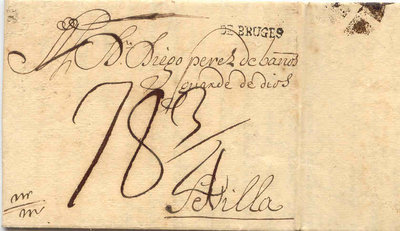 DE BRUGES
Dn. Diego perez de baños
que guarde de dios
78 3/4
Sevilla